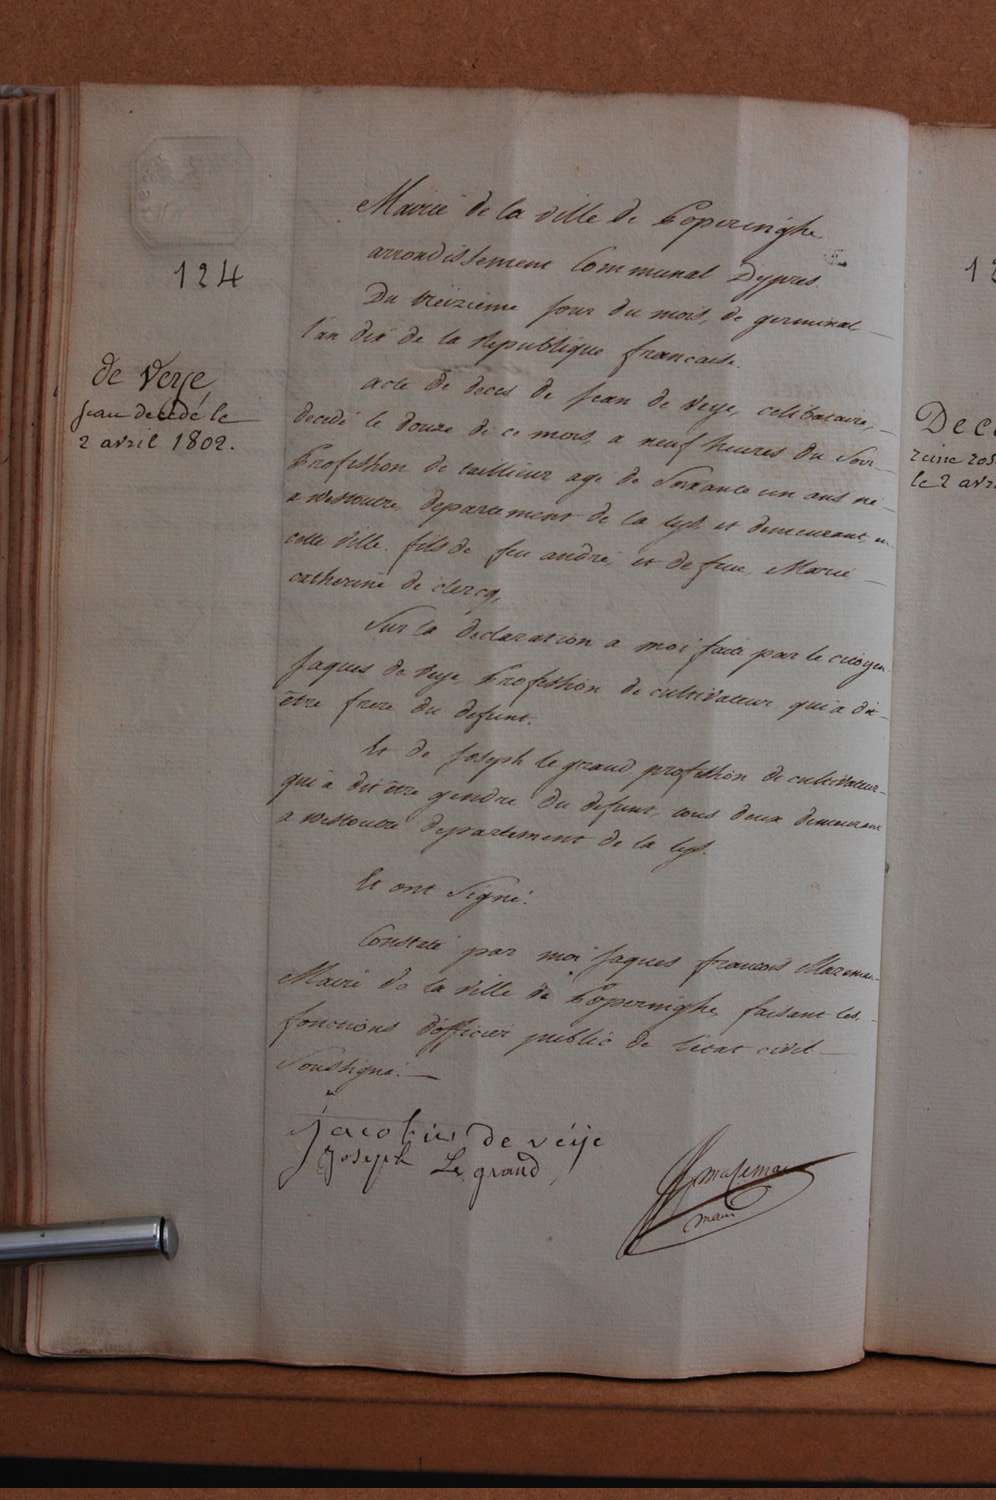 124
de Veye
Jean decedé le
2 avril 1802.
Mairie de la ville de Poperinghe
arrondissement Communal Dypres
Du treizieme jour du mois, de germinal
l'an dix de la Republique francaise.
acte de deces de Jean de Veye, celibataire,
decedé le douze de ce mois, a neuf heures du Soir
Profession de taillieur age de Soixante un ans né
a Westoutre, departement de la Lys et demeurant en
cette Ville. fils de feu andré, et de feue, Marie
catherine de clercq,
Sur la declaration a moi faite par le citoyen
Jaques de Veye, Profession de cultivateur qui a dit
être frere du defunt.
Et de Joseph le grand profession de cultivateur
qui a dit être gendre du defunt, tous deux demeurant
a Westoutre departement de la Lys.
Et ont Signé.
Constaté par moi Jaques francois Mazeman
Maire de la ville de Poperinghe, faisant les
fonctions d'officier public de l'etat civil
Soussigné.
jacobus de veije
Joseph Le grand
mazeman
maire
Dece
le 2 avr